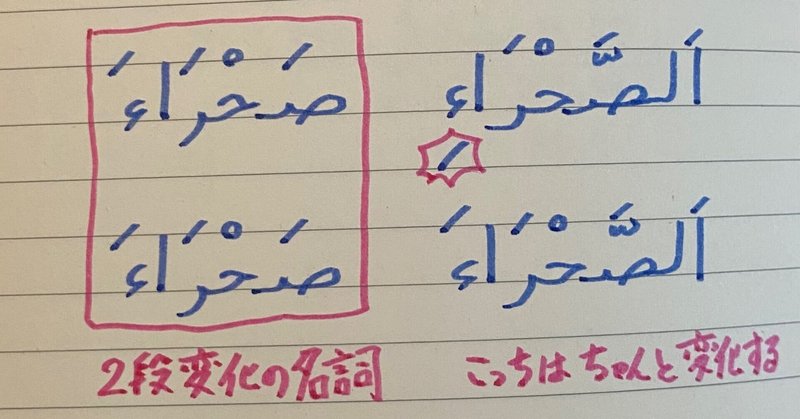 اَلصَّحْرَاءِ صَحْرَاءَ
اَلصَّحْرَاءَ صَحْرَاءَ
2段変化の名詞 こっちはちゃんと変化する